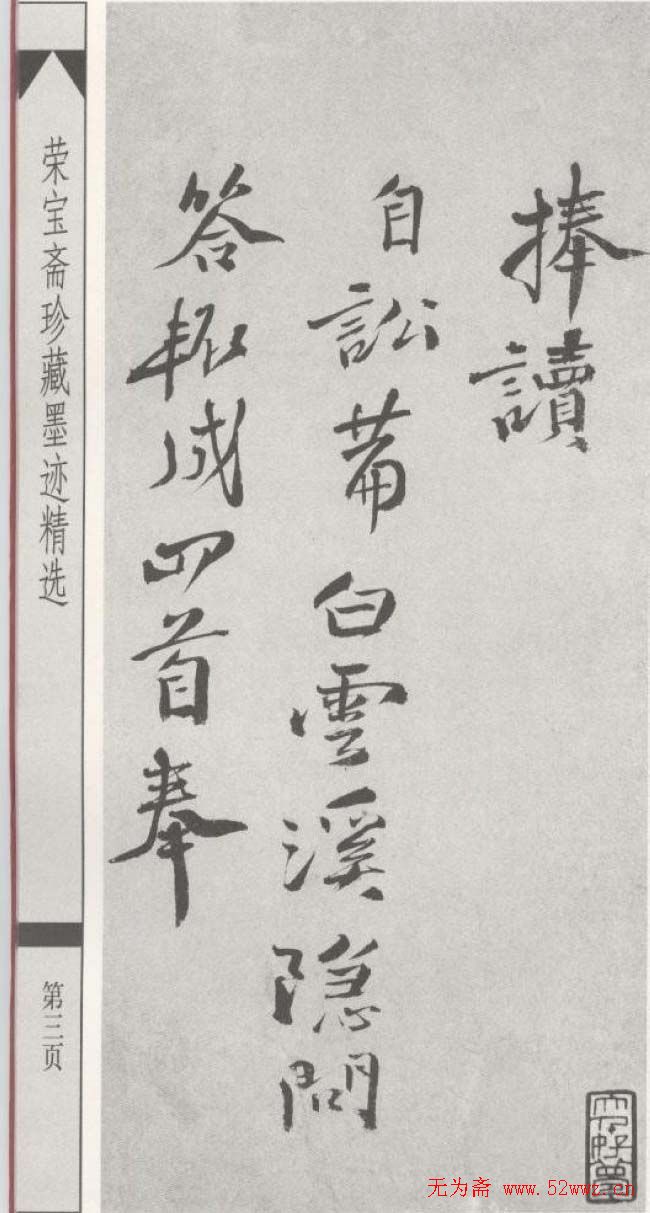 捧讀
自訟白雲溪隐問
答輒成四首奉
荣宝斋珍藏墨迹精选
第三页
无为斋 www.52wwz.cn